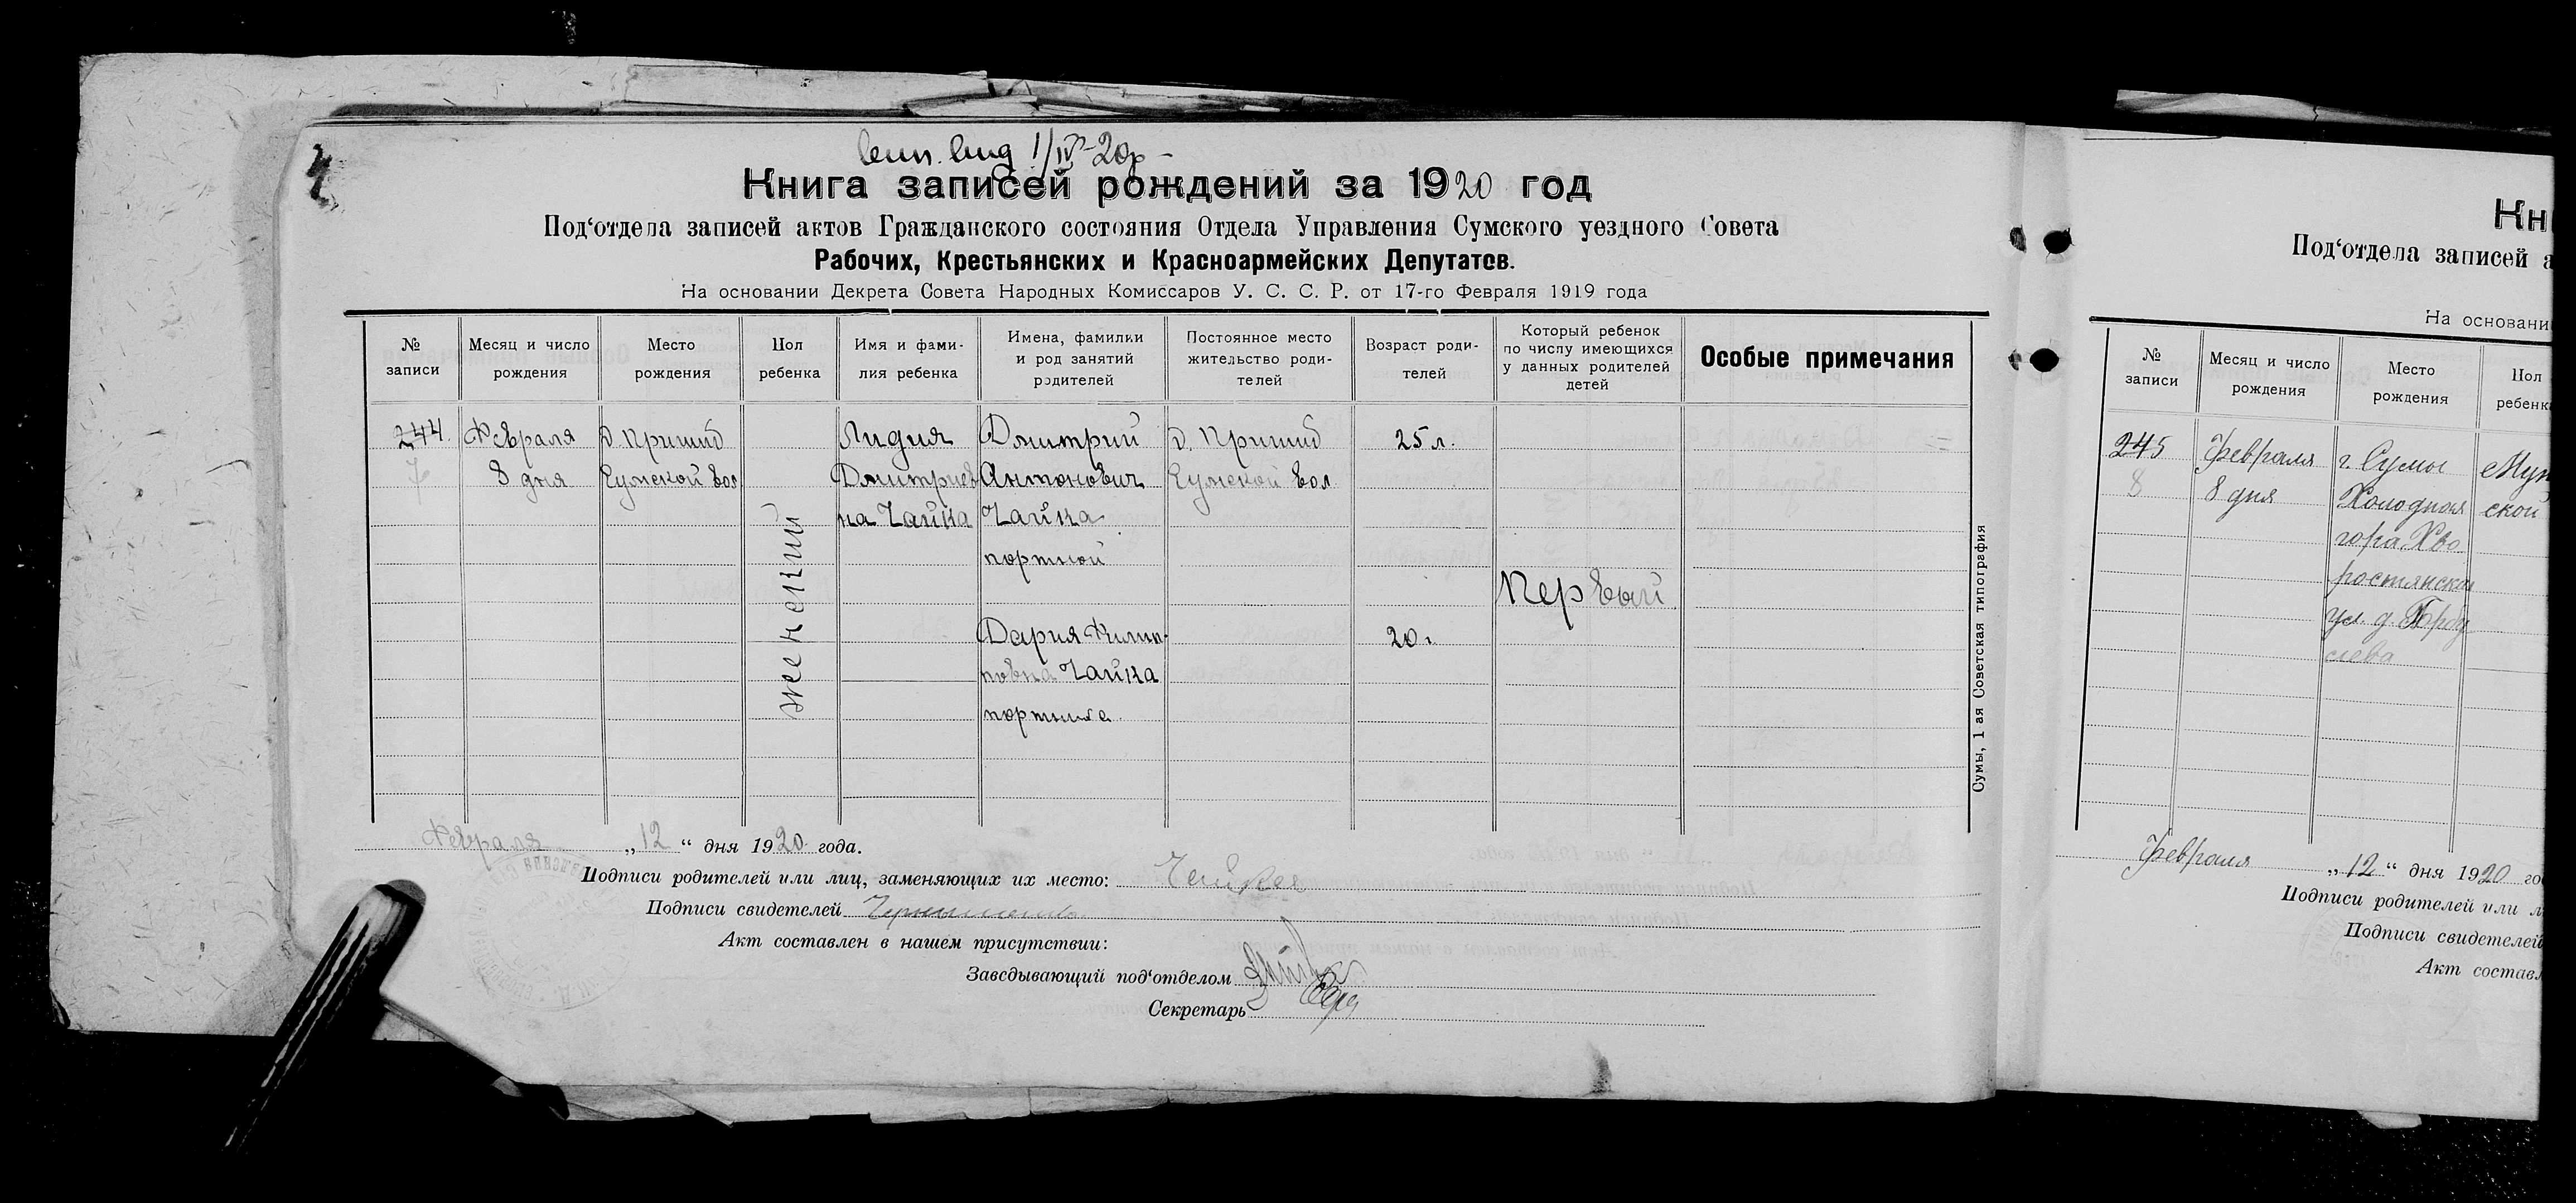 1/IV-20р
Книга записей рождений за 1920 год
Под‘отдела записей актов Гражданского состояния Отдела Управления Сумского уездного Совета
Рабочих, Крестьянских и Красноармейских Депутатов.
На основании Декрета Совета Народных Комиссаров У. С. С. Р. от 17-го Февраля 1919 года
№ записи
Месяц и число рождения
Место рождения
Пол ребенка
Имя и фами-
лия ребенка
Имена, фамилии
и род занятий
родителей
Постоянное место
жительство роди-
телей
Возраст роди-
телей
Который ребенок
по числу имеющихся
у данных родителей
детей
Особые примечания
244
7
Февраля
8 дня
д. Пришиб
Сумской вол
женский
Лидия
Дмитриев
на Чайка
Дмитрий
Антонович
Чайка
портной
Дария Филип-
повна Чайка
портниха
д. Пришиб
Сумской вол
25 л.
20 г
Первый
Сумы, 1 ая Советская типография
Февраля „12“ дня 1920 года.
Подписи родителей или лиц, заменяющих их место: Чайка
Подписи свидетелей
Акт составлен в нашем присутствии:
Заведывающий под‘отделом
Секретарь
Кн
Под‘отдела записей а
На основани
№ записи
Месяц и число рождения
Место рождения
Пол
ребенк
245
8
Февраля
8 дня
г. Сумы
Холодная
гора Хво
ростянская
ул. д.
Муж
ской
Февраля „12“ дня 1920 го
Подписи родителей или л
Подписи свидетелей
Акт состав